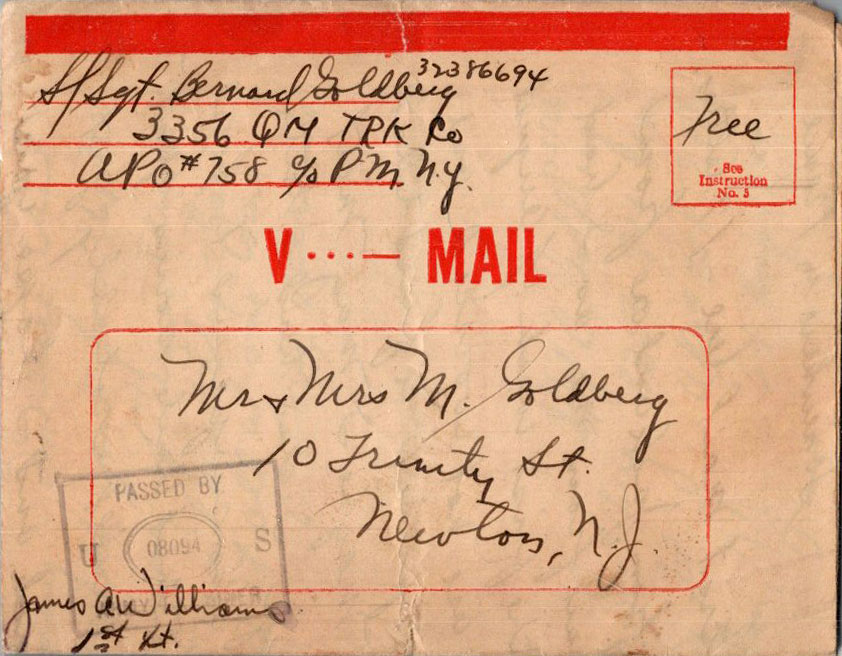 S/Sgt. Bernard Goldberg 32386694
3356 QM TRK Co
APO #758 c/o P.M. N.Y.
Free
See
Instruction
No. 5
V ···— MAIL
Mr & Mrs M. Goldberg
10 Trinity St.
Newton, N.J.
PASSED BY
U 08094 S
James A Williams
1st Lt.